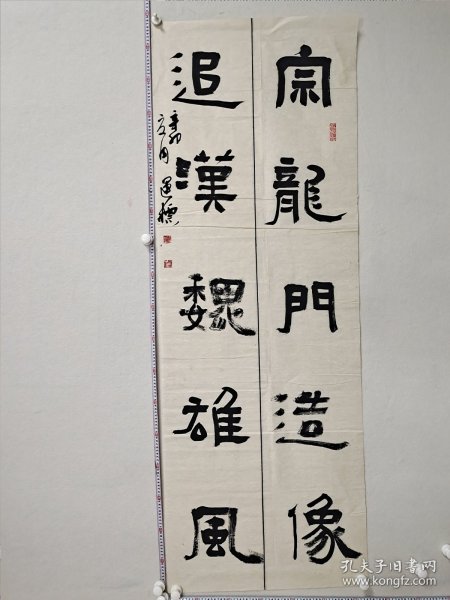 宗龍門造像
追漢魏雄風
辛卯
孔夫子旧书网
www.kongfz.com